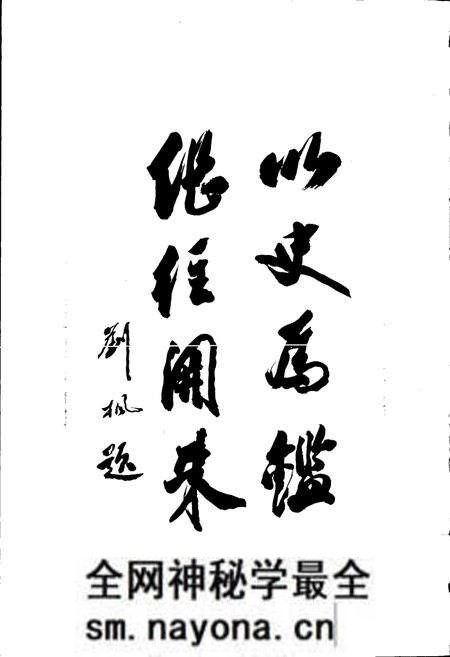 以史为鑑
继往開来
劉枫题
全网神秘学最全
sm.nayona.cn